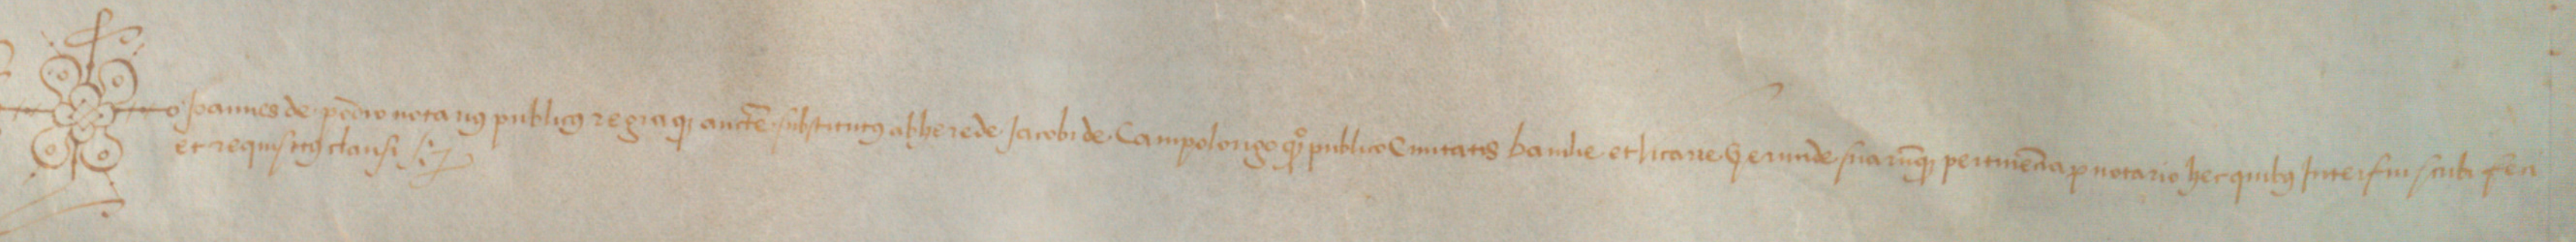 o Joannes de podio notarius publicus regiaque auctte substitutus ab herede Jacobi de Campolongo quo publico Civitatis baiulie et vicarie Gerunde suarumque pertinencia pro notario hec quibus Interfui scribi feci
et requisitus clausi